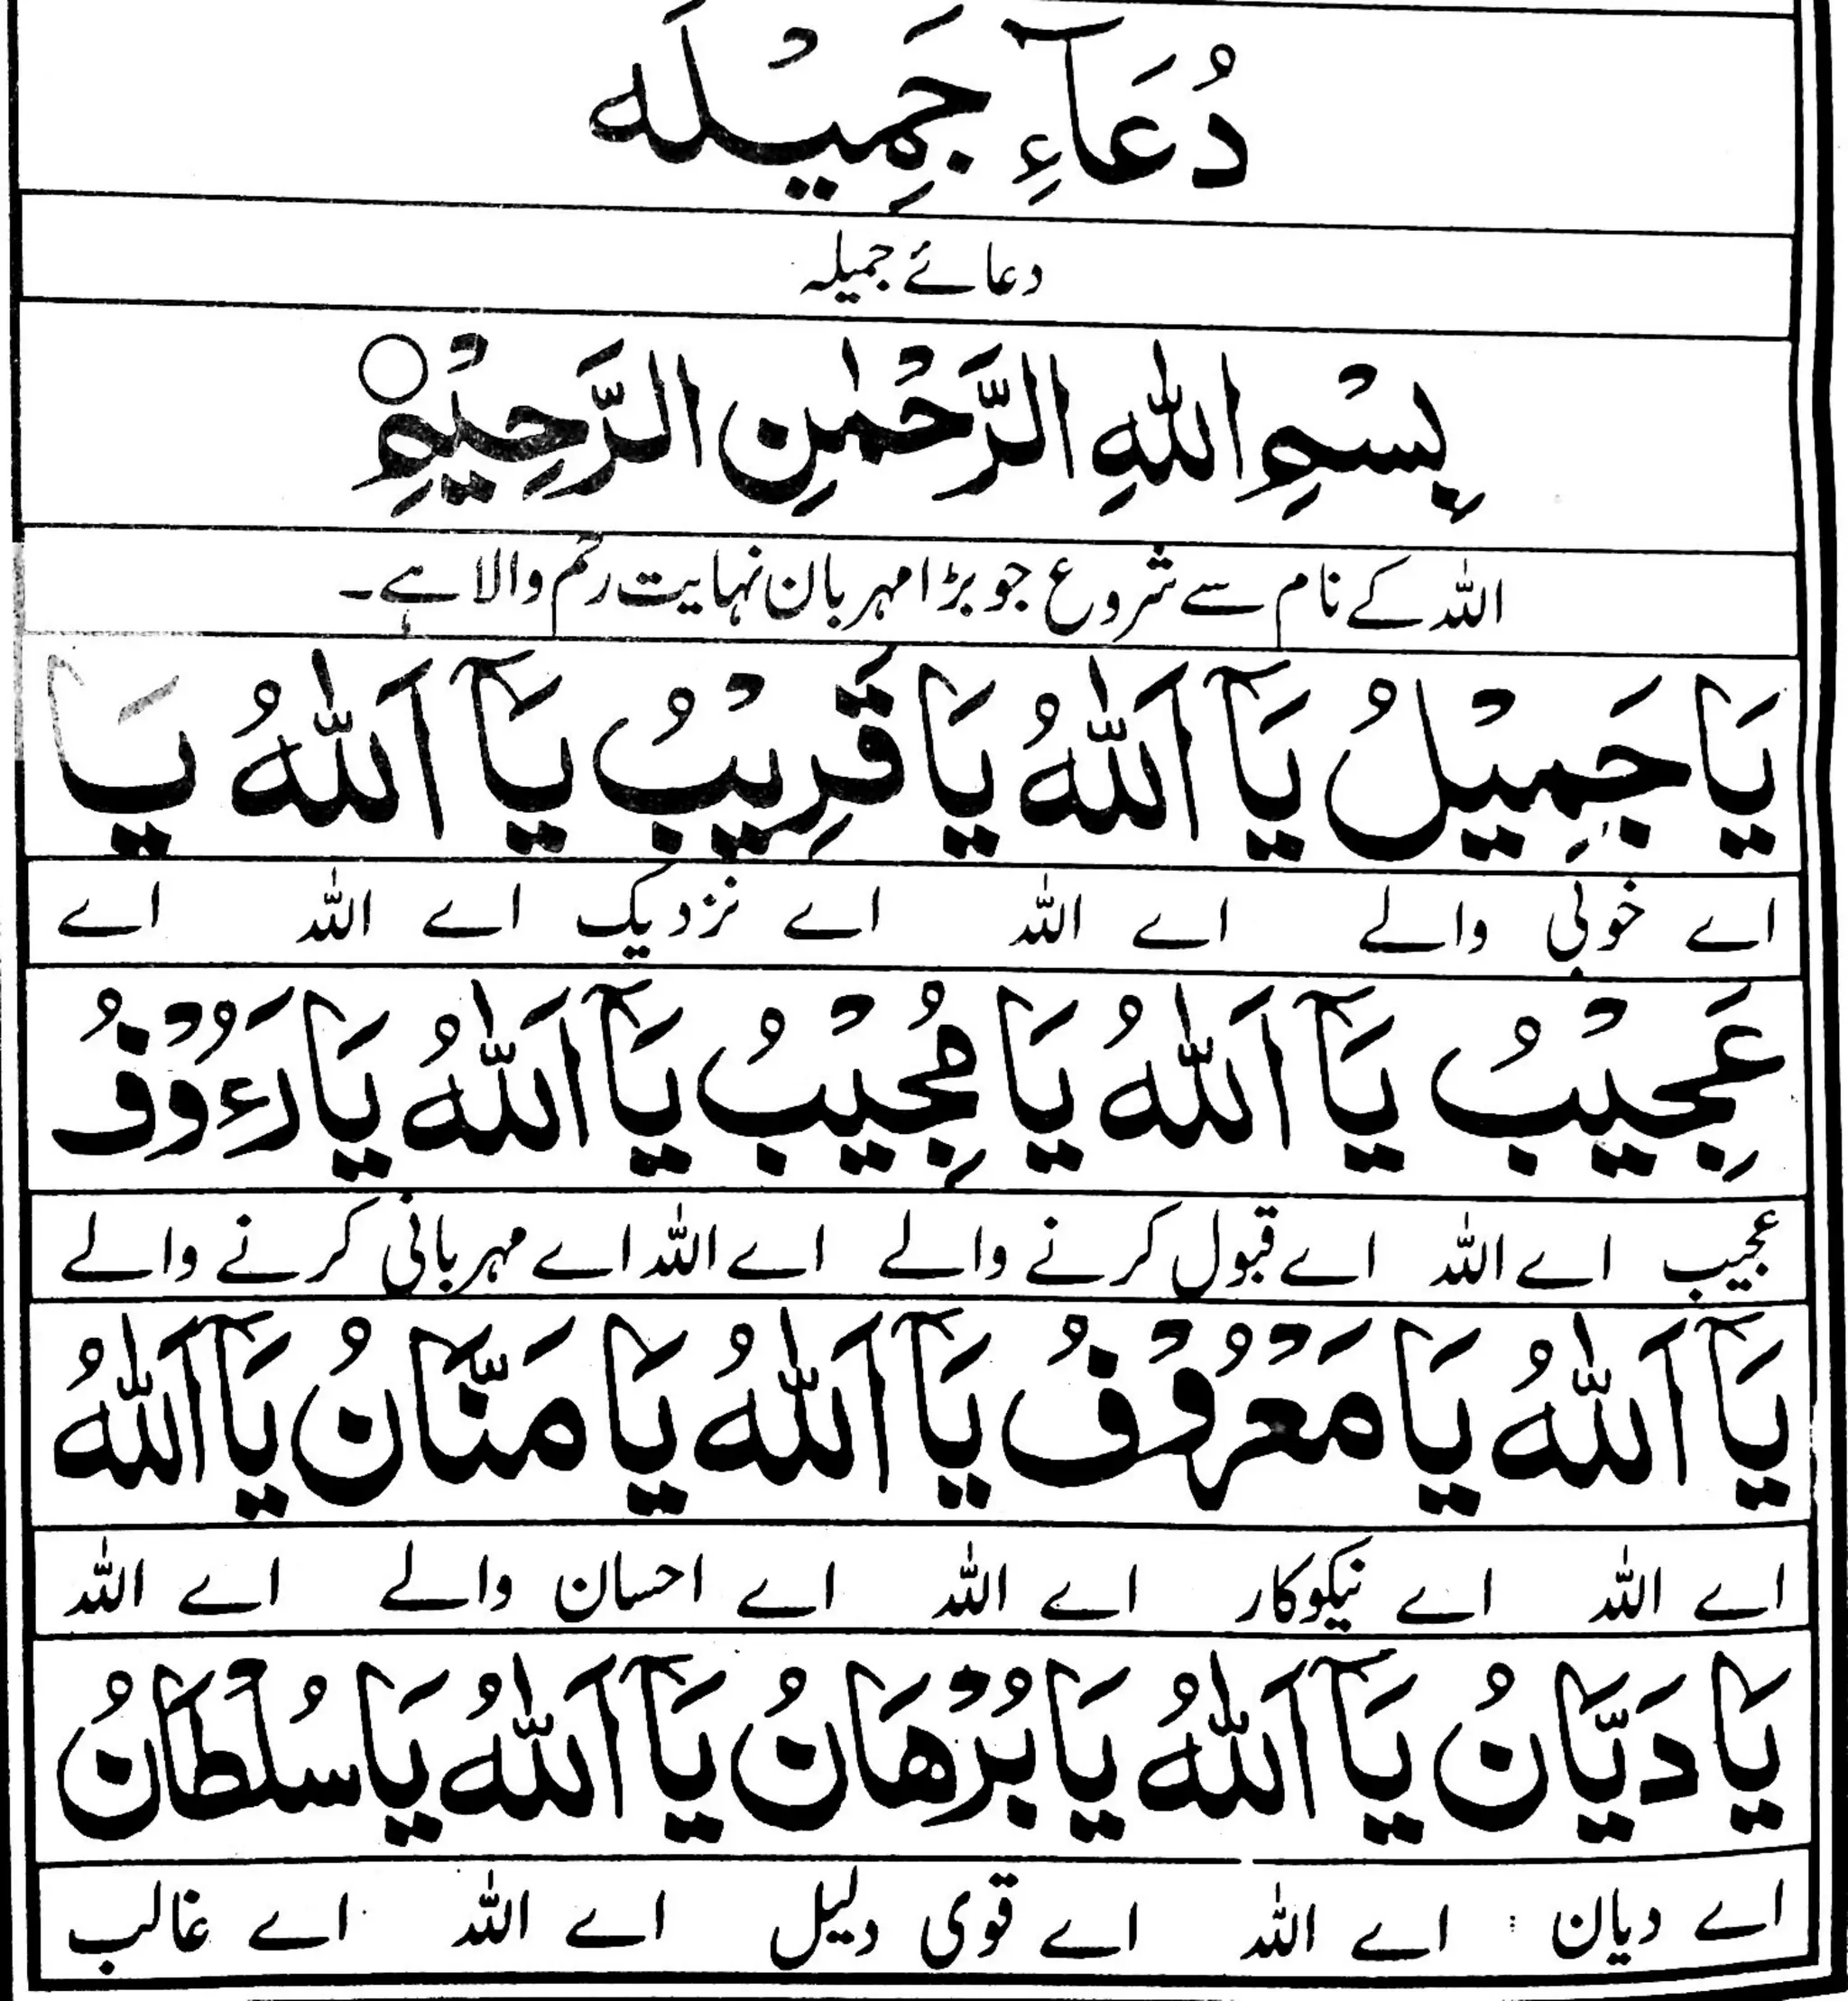 دُعَآءِ جَمِيْلَه
دعائے جمیلہ
بِسْمِ اللّٰهِ الرَّحْمٰنِ الرَّحِيْمِ ○
اللہ کے نام سے شروع جو بڑا مہربان نہایت رحم والا ہے۔
يَا جَمِيْلُ يَآ اَللّٰهُ يَا قَرِيْبُ يَآ اَللّٰهُ يَا
اے خوبی والے اے اللہ اے نزدیک اے اللہ اے
عَجِيْبُ يَآ اَللّٰهُ يَا مُجِيْبُ يَآ اَللّٰهُ يَا رَءُوْفُ
عجیب اے اللہ اے قبول کرنے والے اے اللہ اے مہربانی کرنے والے
يَآ اَللّٰهُ يَا مَعْرُوْفُ يَآ اَللّٰهُ يَا مَنَّانُ يَآ اَللّٰهُ
اے اللہ اے نیکوکار اے اللہ اے احسان والے اے اللہ
يَا دَيَّانُ يَآ اَللّٰهُ يَا بُرْهَانُ يَآ اَللّٰهُ يَا سُلْطَانُ
اے دیان اے اللہ اے قوی دلیل اے اللہ اے غالب